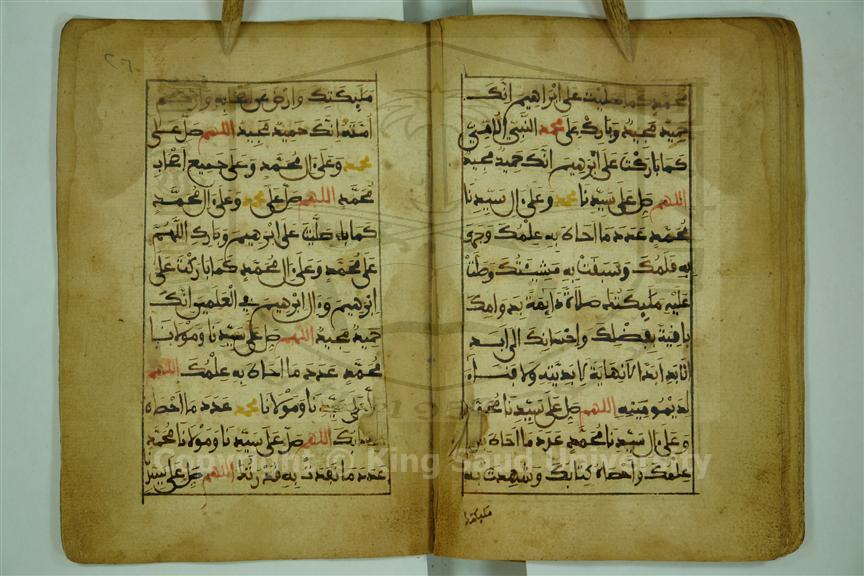 محمد كما صليت على ابراهيم انك
حميد مجيد وبارك على محمد النبي الامي
كما باركت على ابرهيم انك حميد مجيد
اللهم صل على سيدنا محمد وعلى ال سيدنا
محمد عدد ما احاط به علمك وجرى
به قلمك وسبقت به مشيئتك وصلت
عليه مليكتك صلاة دايمة بدوامك
باقية بفضلك واحسانك الى ابد
ابدا لانهاية لابديته ولا فناء
لديموميته اللهم صل على سيدنا محمد
وعلى ال سيدنا محمد عدد ما احاط به
علمك واحصاه كتابك وشهدت به
مليكتك
٢٦
مليكتك وارض عن اصحابه وارحم
امته انك حميد مجيد اللهم صل على
محمد وعلى ال محمد وعلى جميع اصحاب
محمد اللهم صل على محمد وعلى ال محمد
كما صليت على ابرهيم وبارك اللهم
على محمد وعلى ال محمد كما باركت على
ابرهيم وال ابرهيم في العلمين انك
حميد مجيد اللهم صل على سيدنا ومولانا
محمد عدد ما احاط به علمك اللهم
صل على سيدنا ومولانا محمد عدد ما احصاه
كتابك اللهم صل على سيدنا ومولانا محمد
عدد ما نفذت به قدرتك اللهم صل على سيدنا
Copyright © King Saud University